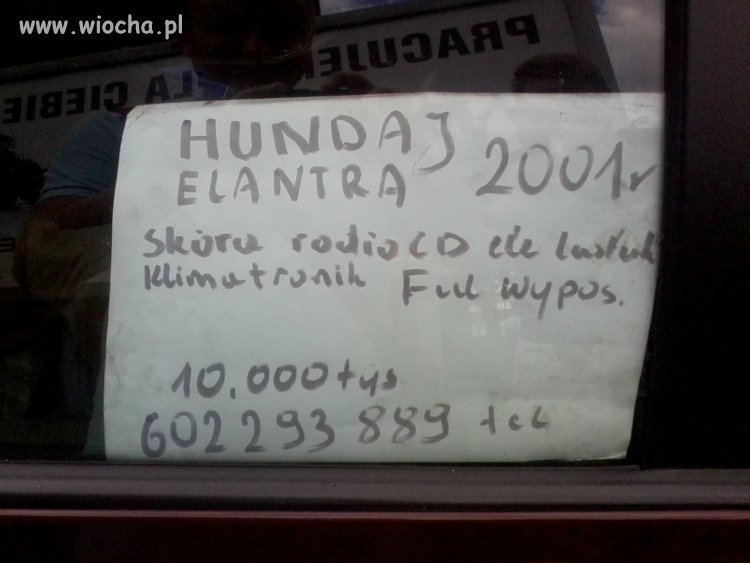 www.wiocha.pl
PRACUJE
LA CIEBIE
HUNDAJ
ELANTRA 2001r
Skóra radio CD ele lusterk
Klimatronik Full wypos.
10.000 tys
602 293 889 tel